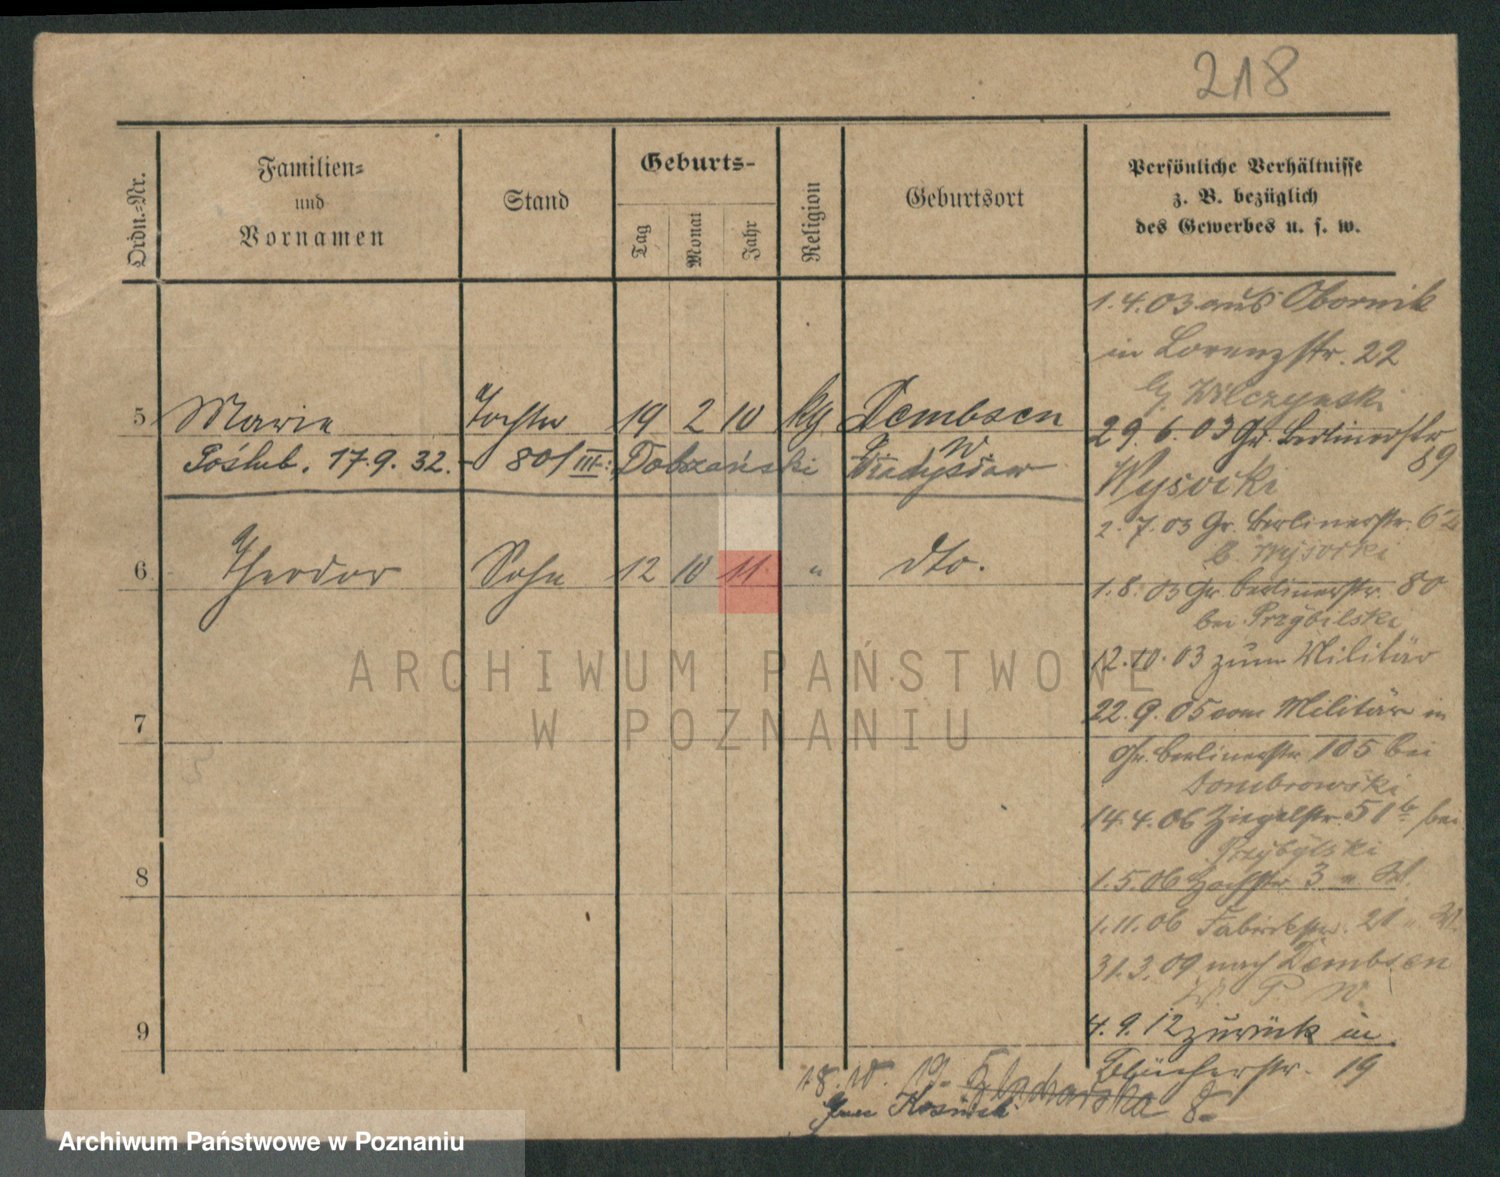 218
Ordn.-Nr.
Familien-
und
Vornamen
Stand
Geburts-
Tag
Monat
Jahr
Religion
Geburtsort
Persönliche Verhältnisse
z. B. bezüglich
des Gewerbes u. s. w.
5 Marie Tochter 19 2 10 kg Dembsen
Poślub. 17.9.32. - 801/III: Dobrzański Władysław
6 Theodor Sohn 12 10 11 " dto.
7
8
9
1.4.03 aus Obornik
in Lorenzstr. 22
Wilczynski
29.6.03 Gr. Berlinerstr
89
Wysocki
2.7.03 Gr. Berlinerstr. 62
b. Wysocki
1.8.03 Gr. Berlinerstr. 80
bei Przybilski
12.10.03 zum Militär
22.9.05 vom Militär in
Gr. Berlinerstr 105 bei
Dombrowski
14.4.06 Ziegelstr. 51b bei
Przybylski
1.5.06 Hochstr 3
1.11.06 Fabrikstr. 21
31.3.09 nach Dembsen
4.9.12 zurück in
Blücherstr. 19
18.10.19.
8
ARCHIWUM PAŃSTWOWE
W POZNANIU
Archiwum Państwowe w Poznaniu